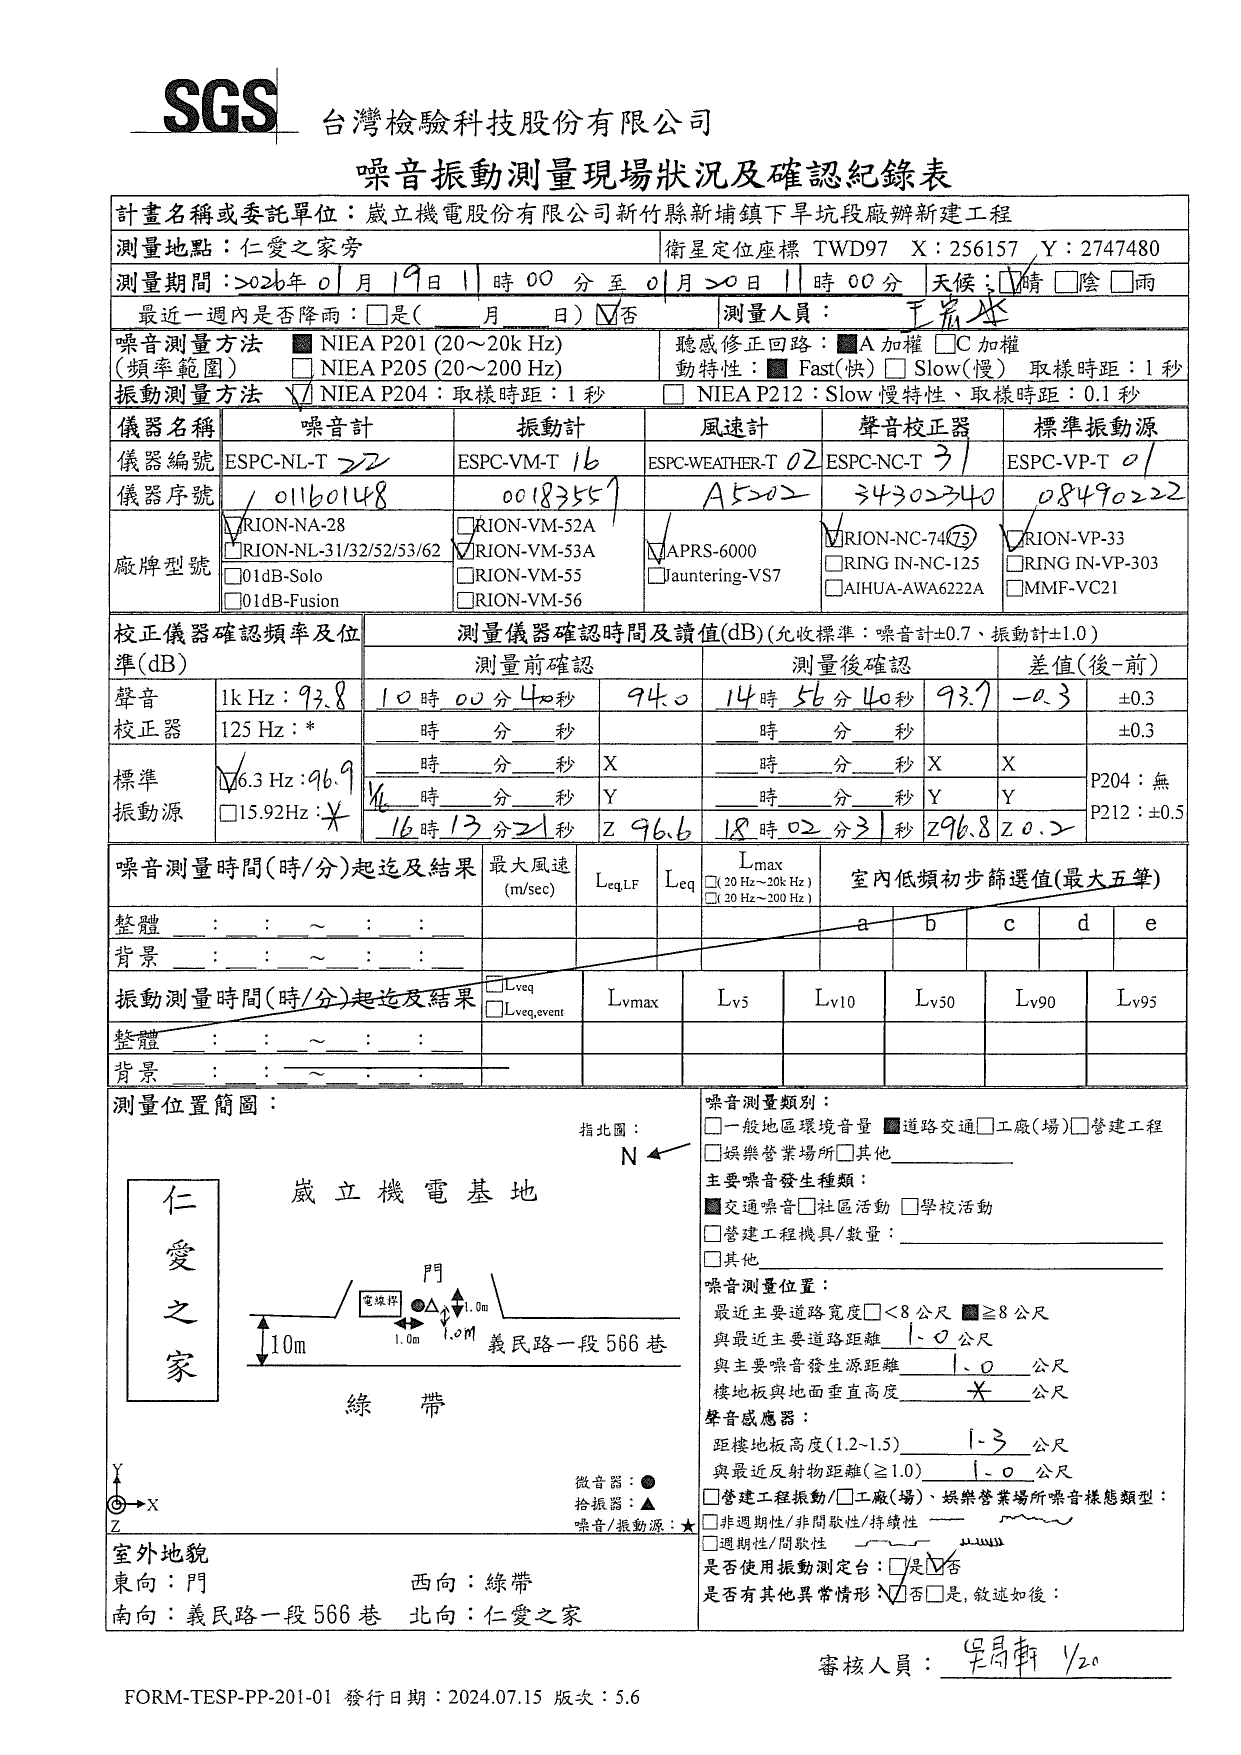 SGS 台灣檢驗科技股份有限公司
噪音振動測量現場狀況及確認紀錄表
計畫名稱或委託單位：崴立機電股份有限公司新竹縣新埔鎮下旱坑段廠辦新建工程
測量地點：仁愛之家旁 衛星定位座標 TWD97 X：256157 Y：2747480
測量期間：2026年 01月 19日 11時 00 分 至 01月 20日 11時 00分 天候：☑晴 □陰 □雨
最近一週內是否降雨：□是( ___月___日) ☑否 測量人員：
噪音測量方法 ■ NIEA P201 (20～20k Hz) 聽感修正回路：■A 加權 □C 加權
(頻率範圍) □ NIEA P205 (20～200 Hz) 動特性：■ Fast(快) □ Slow(慢) 取樣時距：1 秒
振動測量方法 ☑ NIEA P204：取樣時距：1 秒 □ NIEA P212：Slow 慢特性、取樣時距：0.1 秒
儀器名稱 噪音計 振動計 風速計 聲音校正器 標準振動源
儀器編號 ESPC-NL-T 22 ESPC-VM-T 16 ESPC-WEATHER-T 02 ESPC-NC-T 31 ESPC-VP-T 01
儀器序號 01160148 00183557 A5202 34302340 08490222
廠牌型號
☑RION-NA-28 □RION-VM-52A ☑RION-NC-74(75) ☑RION-VP-33
□RION-NL-31/32/52/53/62 ☑RION-VM-53A ☑APRS-6000 □RING IN-NC-125 □RING IN-VP-303
□01dB-Solo □RION-VM-55 □Jauntering-VS7 □AIHUA-AWA6222A □MMF-VC21
□01dB-Fusion □RION-VM-56
校正儀器確認頻率及位準(dB) 測量儀器確認時間及讀值(dB) (允收標準：噪音計±0.7、振動計±1.0 )
測量前確認 測量後確認 差值(後-前)
聲音 1k Hz：93.8 10時 00分 40秒 94.0 14時 56分 40秒 93.7 -0.3 ±0.3
校正器 125 Hz：* ___時___分___秒 ___時___分___秒 ±0.3
標準 ☑6.3 Hz：96.9 ___時___分___秒 X ___時___分___秒 X X P204：無
振動源 □15.92Hz：* 1/16 ___時___分___秒 Y ___時___分___秒 Y Y P212：±0.5
16時 13分 21秒 Z 96.6 18時 02分 31秒 Z 96.8 Z 0.2
噪音測量時間(時/分)起迄及結果 最大風速 (m/sec) Leq,LF Leq Lmax □( 20 Hz～20k Hz ) □( 20 Hz～200 Hz ) 室內低頻初步篩選值(最大五筆)
整體 __：__：__～__：__：__ a b c d e
背景 __：__：__～__：__：__
振動測量時間(時/分)起迄及結果 □Lveq □Lveq,event Lvmax Lv5 Lv10 Lv50 Lv90 Lv95
整體 __：__：__～__：__：__
背景 __：__：__～__：__：__
測量位置簡圖：
指北圖：
N
崴立機電基地
仁愛之家
門
電線桿
1.0m
1.0m
1.0m
10m
義民路一段 566 巷
綠 帶
Y
X
Z
微音器：●
拾振器：▲
噪音/振動源：★
室外地貌
東向：門 西向：綠帶
南向：義民路一段 566 巷 北向：仁愛之家
噪音測量類別：
□一般地區環境音量 ■道路交通□工廠(場)□營建工程
□娛樂營業場所□其他
主要噪音發生種類：
■交通噪音□社區活動 □學校活動
□營建工程機具/數量：
□其他
噪音測量位置：
最近主要道路寬度□<8 公尺 ■≧8 公尺
與最近主要道路距離 1.0 公尺
與主要噪音發生源距離 1.0 公尺
樓地板與地面垂直高度 * 公尺
聲音感應器：
距樓地板高度(1.2~1.5) 1.3 公尺
與最近反射物距離(≧1.0) 1.0 公尺
□營建工程振動/□工廠(場)、娛樂營業場所噪音樣態類型：
□非週期性/非間歇性/持續性
□週期性/間歇性
是否使用振動測定台：□是☑否
是否有其他異常情形：☑否□是, 敘述如後：
審核人員： 1/20
FORM-TESP-PP-201-01 發行日期：2024.07.15 版次：5.6